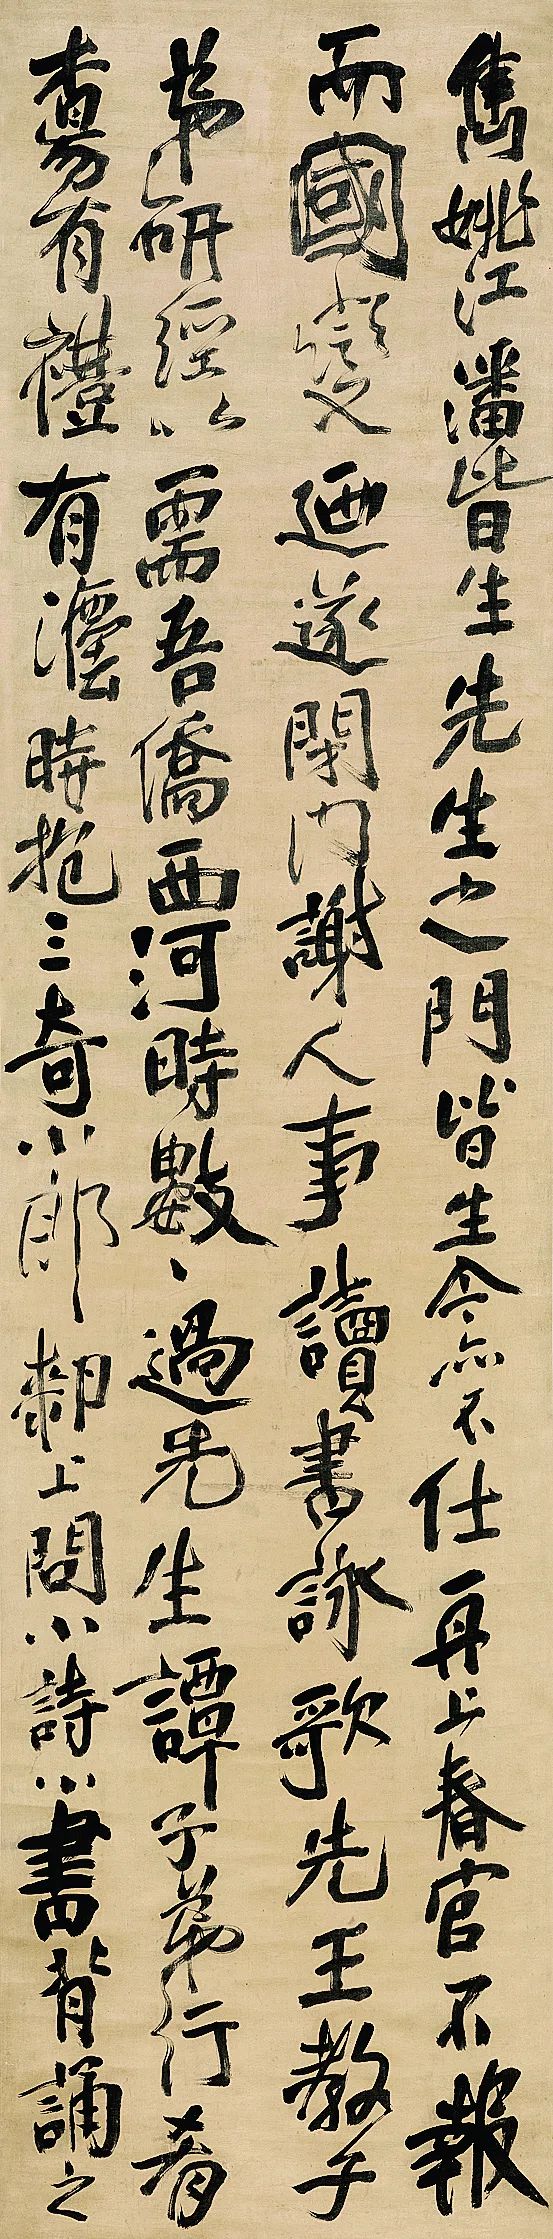 雋姚江潘皆生先生之門皆生今亦不仕再上春官不報
而國變廼遂閉門謝人事讀書詠歌先王教子
弟研經以需吾僑西河時數〻過先生譚子弟行肴
有禮有瀍時抱三奇小郎郗上問小詩小書背誦之